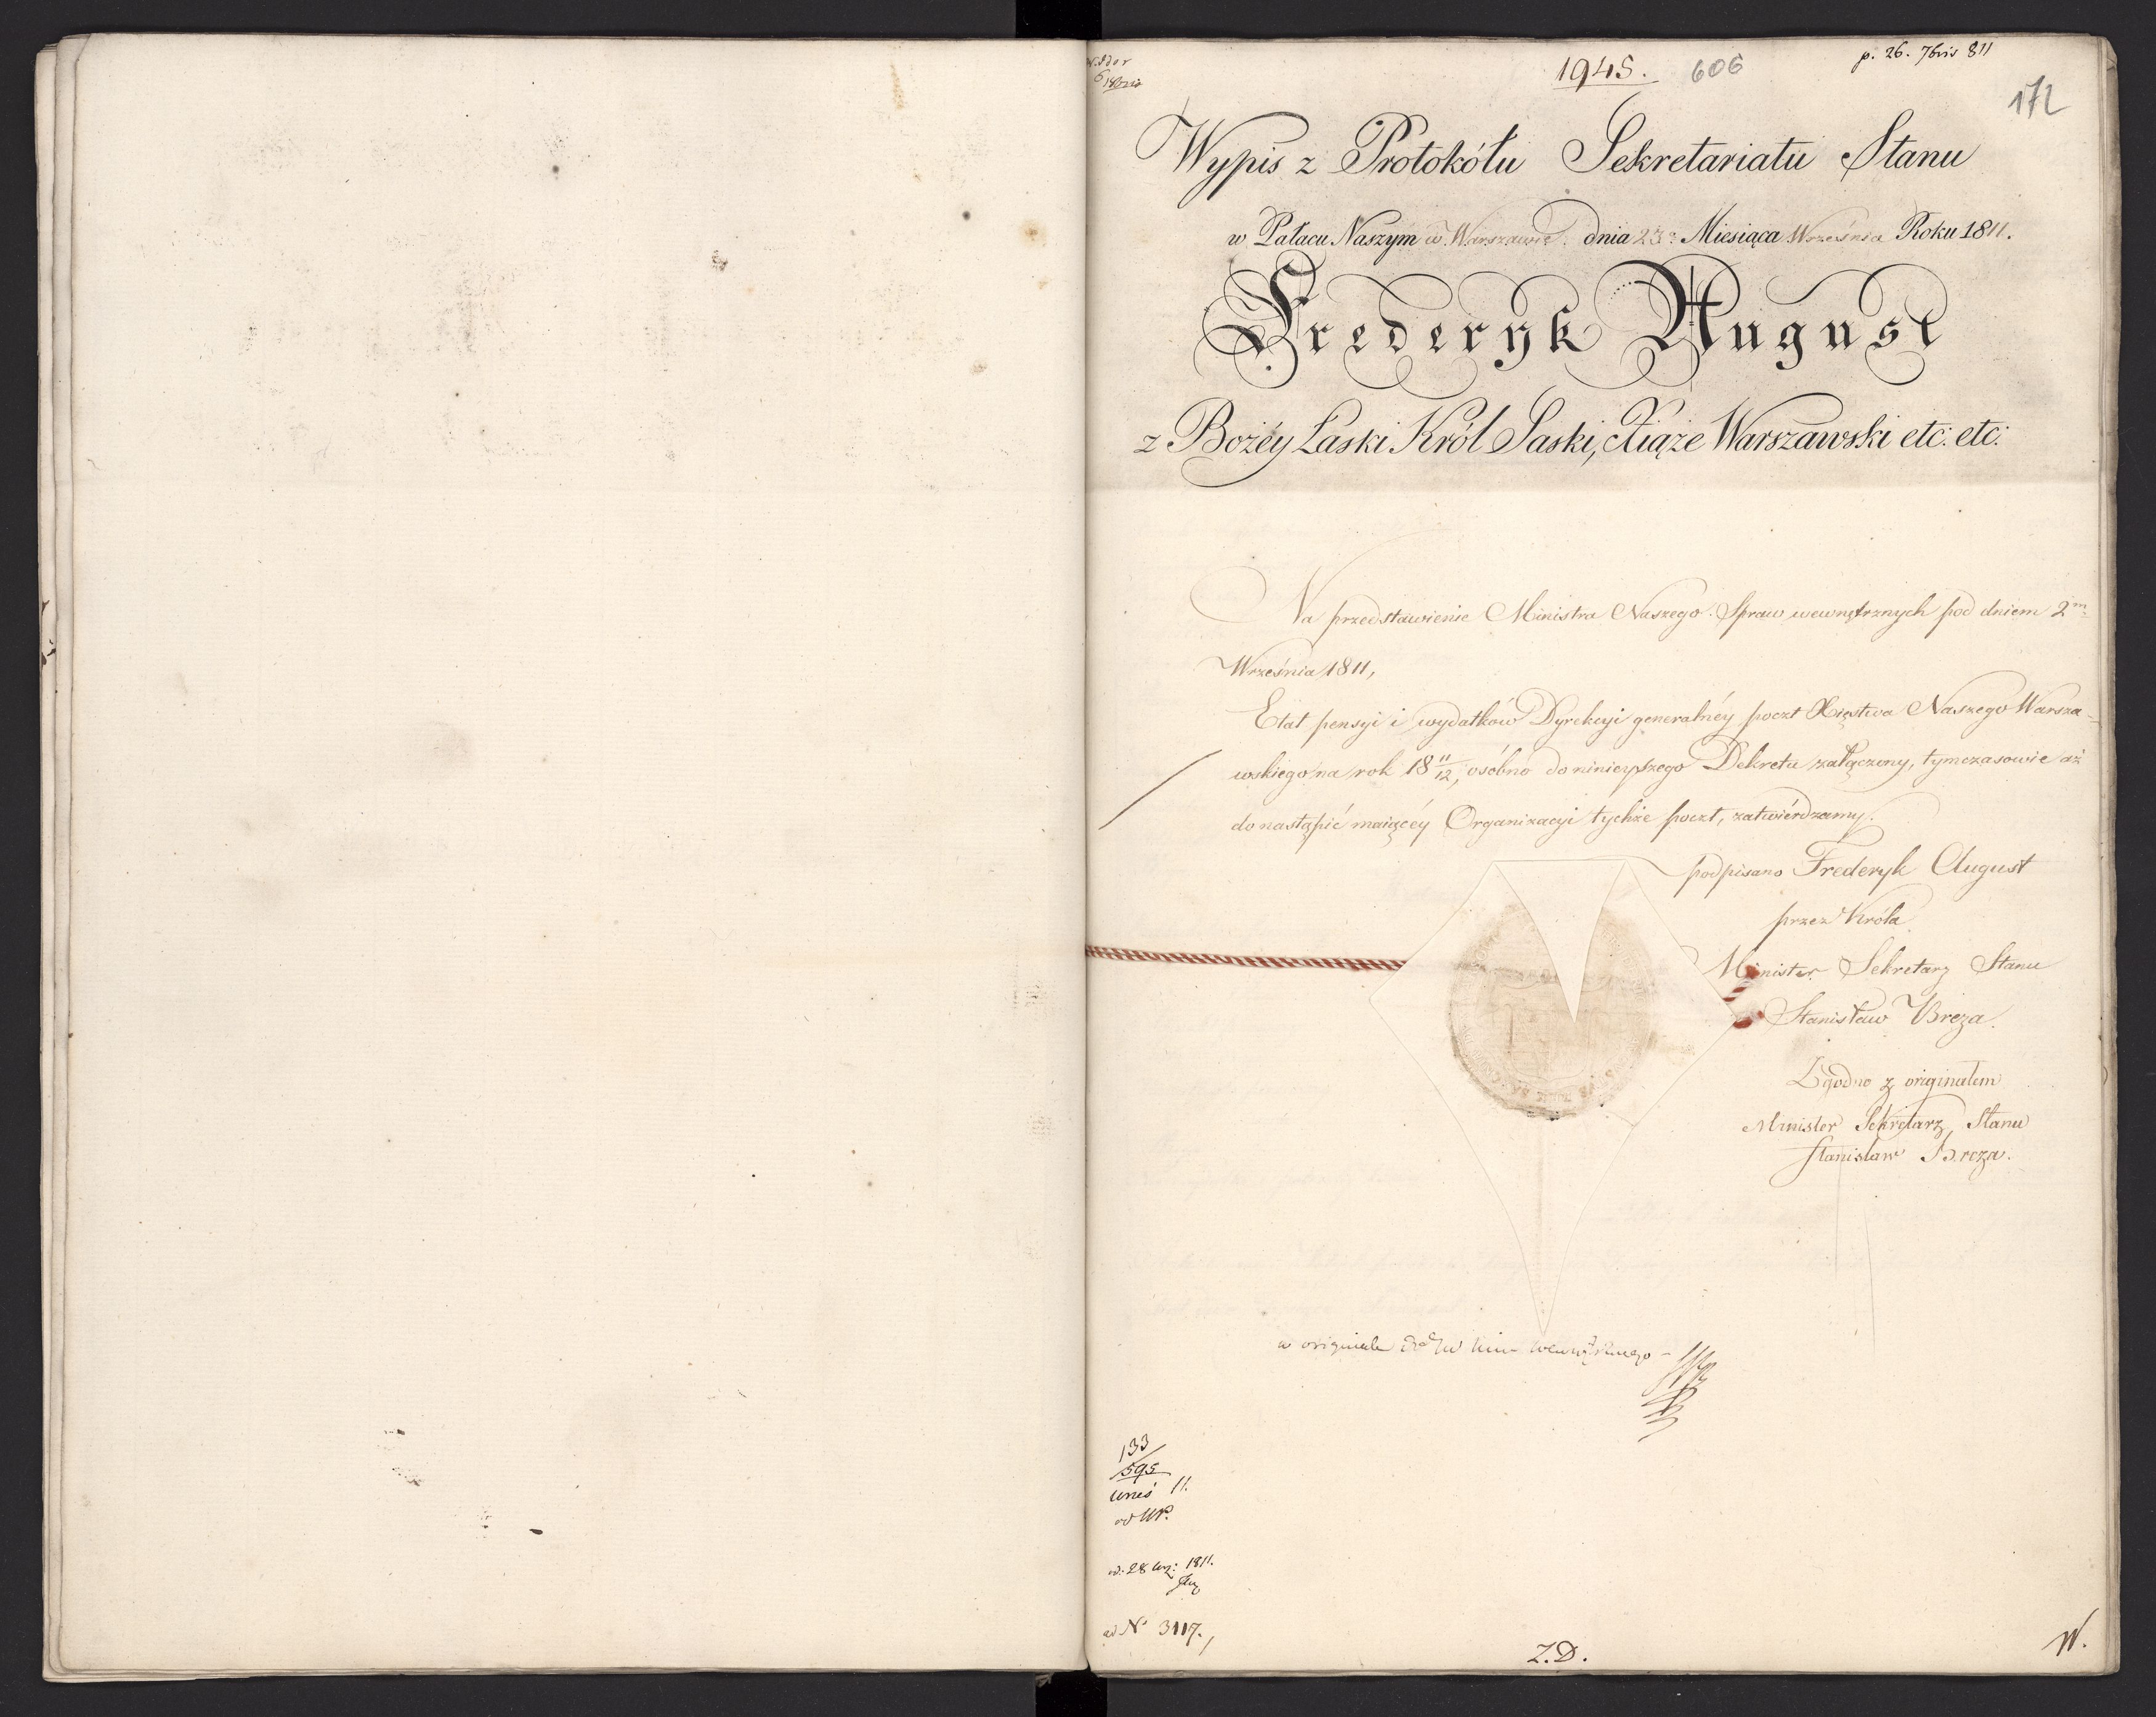 1945. 606 p. 26. 7bris 811
172
Wypis z Protokółu Sekretariatu Stanu
w Pałacu Naszym w Warszawie dnia 23º Miesiąca Września Roku 1811.
Frederyk August
z Bożéy Łaski Król Saski, Xiąże Warszawski etc: etc:
Na przedstawienie Ministra Naszego Spraw wewnętrznych pod dniem 2m
Września 1811,
Etat pensyi i wydatków Dyrekcyi generalnéy poczt Xięstwa Naszego Warsza-
wskiego na rok 18 11/12, osóbno do ninieyszego Dekretu załączony, tymczasowie aż
do nastąpić maiącéy Organizacyi tychże poczt, zatwiérdzamy.
podpisano Frederyk August
przez Króla
Minister Sekretarz Stanu
Stanisław Breza.
Zgodno z originałem
Minister Sekretarz Stanu
Stanisław Breza.
w originale
133
595
11.
od
d. 28 1811.
ad Nº 3117.
Z.D.
W.